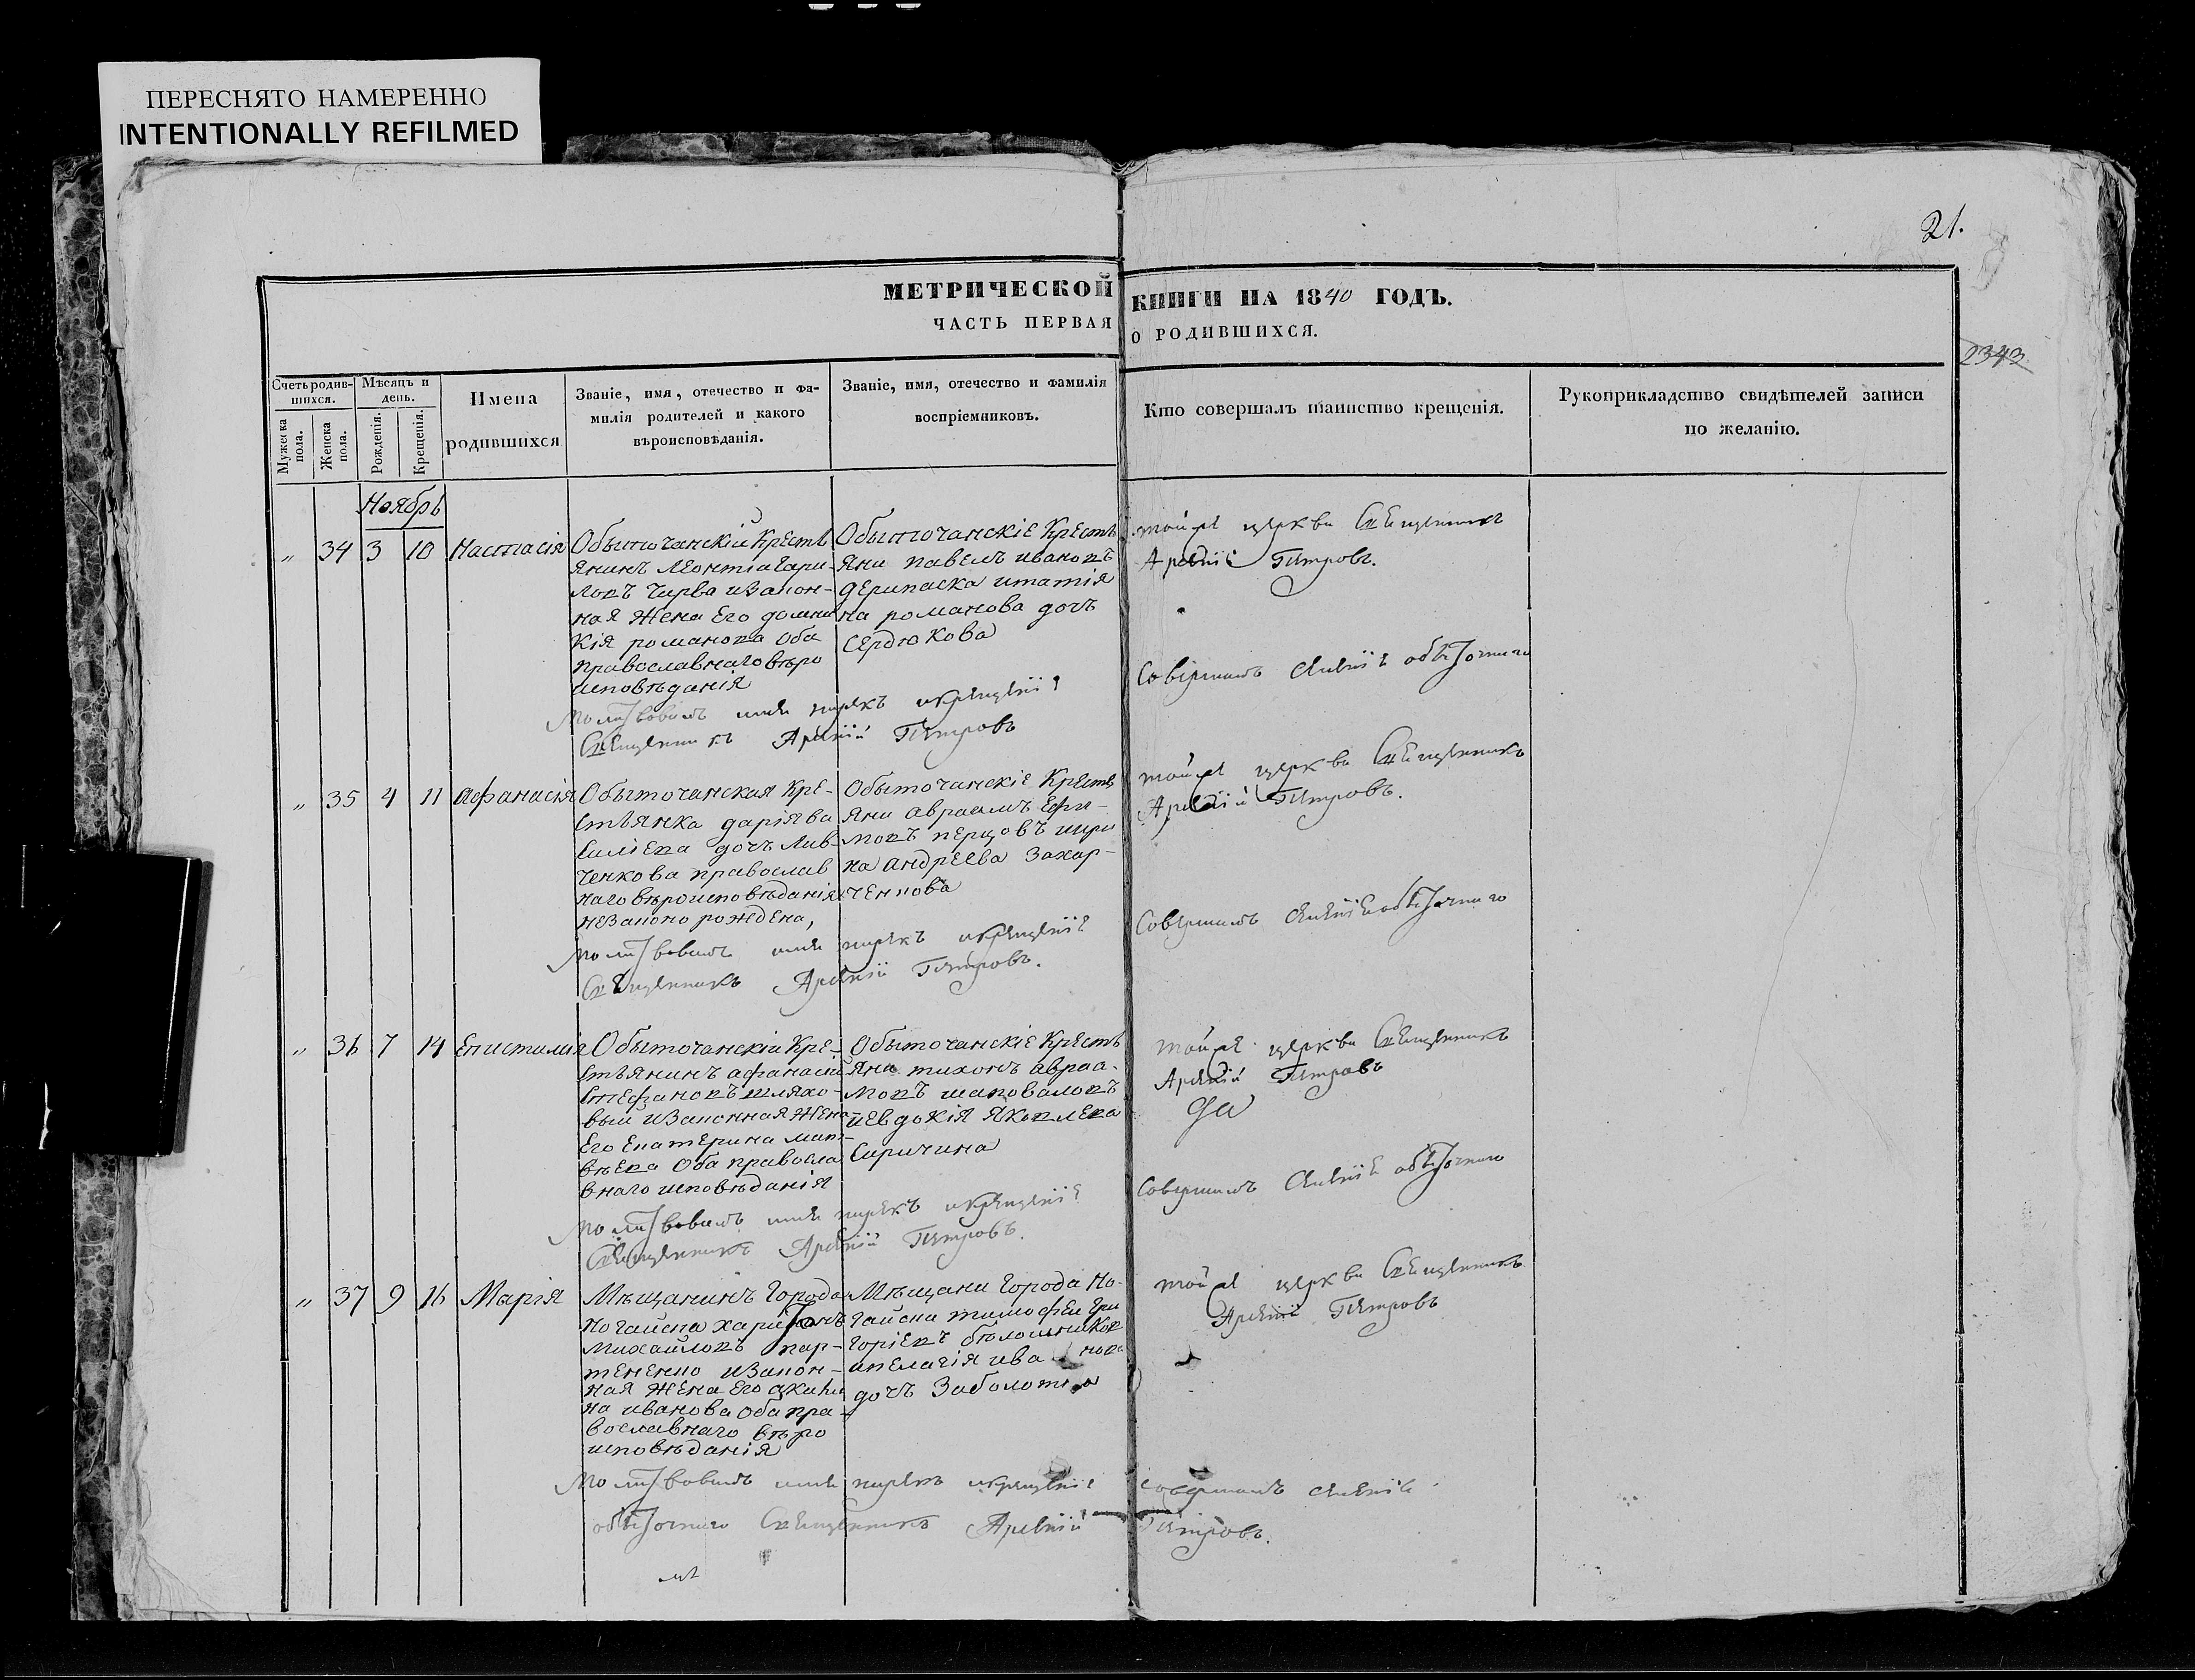 ПЕРЕСНЯТО НАМЕРЕННО
INTENTIONALLY REFILMED
21.
МЕТРИЧЕСКОЙ КНИГИ НА 1840 ГОДЪ.
ЧАСТЬ ПЕРВАЯ О РОДИВШИХСЯ.
2343
Счетъ родив-
шихся.
Мужеска
пола.
Женска
пола.
Мѣсяцъ и
день.
Рожденія.
Крещенія.
Имена
родившихся
Званіе, имя, отечество и фа-
милія родителей и какого
вѣроисповѣданія.
Званіе, имя, отечество и фамилія
воспріемниковъ.
Кто совершалъ таинство крещенія.
Рукоприкладство свидѣтелей записи
по желанію.
Ноябрь
„ 34 3 10 Настасія
Обыточанскій Кресть
янинъ Леонтій
ловъ Чирва изакон-
ная Жена Его домни
кія романова Оба
православнаго вѣро
исповѣданія
Обыточанскіе Кресть
яни павелъ ивановъ
дерипаска итатія
на романова дочь
Сердюкова
тойже церкви Священникъ
Арсеній Петровъ.
Молитвовалъ имя нарекъ икрещеніе
Совершалъ
Священникъ Арсеній Петровъ
„ 35 4 11 Афанасія
Обыточанская Кре-
стьянка дарія ва
силіева дочь Лив-
ченкова православ
наго вѣроисповѣданія
незаконо рождена,
Обыточанскіе Кресть
яни авраамъ Ефи-
мовъ перцовъ иири
на андреева Захар-
ченкова
тойже церкви Священникъ
Арсеній Петровъ.
Молитвовалъ имя нарекъ икрещеніе
Совершалъ
Священникъ Арсеній Петровъ.
„ 36 7 14 Епистимія
Обыточанскій Кре-
стьянинъ афанасій
Стефановъ шляхо-
вый изаконная Жена
Его Екатерина мат-
вѣева Оба правосла
внаго исповѣданія
Обыточанскіе Кресть
яни тихонъ авраа-
мовъ шаповаловъ
иевдокія яковлева
Сиричина
тойже церкви Священникъ
Арсеній Петровъ
Молитвовалъ имя нарекъ икрещеніе
Совершалъ
Священникъ Арсеній Петровъ.
„ 37 9 16 Марія
Мѣщанинъ Города
Ногайска харитонъ
Михайловъ пар-
тененко изакон-
ная Жена Его акили
на иванова Оба пра-
вославнаго вѣро
исповѣданія
Мѣщани Города Но-
гайска тимофей Гри
горіевъ
ипелагія ива нова
дочь
тойже церкви Священникъ
Арсеній Петровъ
Молитвовалъ имя нарекъ икрещеніе совершалъ
Священникъ Арсеній Петровъ.